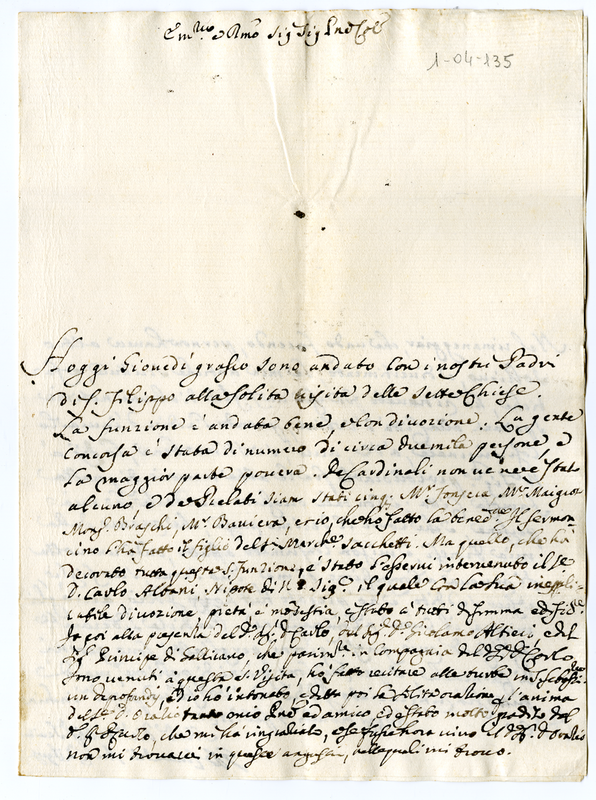 Em.mo e Rmo Sig Sig Pne Col
1-04-135
Hoggi Giovedì grasso sono andato con i nostri Padri
di S. Filippo alla solita visita delle sette Chiese.
La funzione è andata bene, e con divozione. La gente
concorsa è stata di numero di circa due mila persone, e
la maggior parte povera. De Cardinali non ve ne è stato
alcuno, e de Prelati siam stati cinq. Mr. Fonseca, Mr. Maigrot
Mons. Braschi, Mr. Baviera, et io, che hò fatto la bened.ne Il sermon
cino l'hà fatto il figlio del Sr. March.e Sacchetti. Ma quello, che hà
decorato tutta questa S. funzione, è stato l'esservi intervenuto il Sr.
D. Carlo Albani, Nipote di N. Sig.re, il quale con la sua inespli
cabile divozione, pietà e modestia, è stato à tutti di
Io poi alla presenza del Sr. D. Carlo, del Sig. D. Girolamo Altieri, e del
Sig. Principe di Gallicano, che parim.te in compagnia del D. Carlo
sono venuti à questa S. Visita, hò fatto recitare alle turbe in S. Sebast.
un Deprofundis, ed io hò intonato, e detta poi la orazione l'anima
del ed amico, ed è stato molto gradito dal
Sr. D. Carlo, che mi hà ringraziato, e se fusse hora vivo il D. Orazio
non mi trovarei in queste angustie, nelle quali mi trovo.